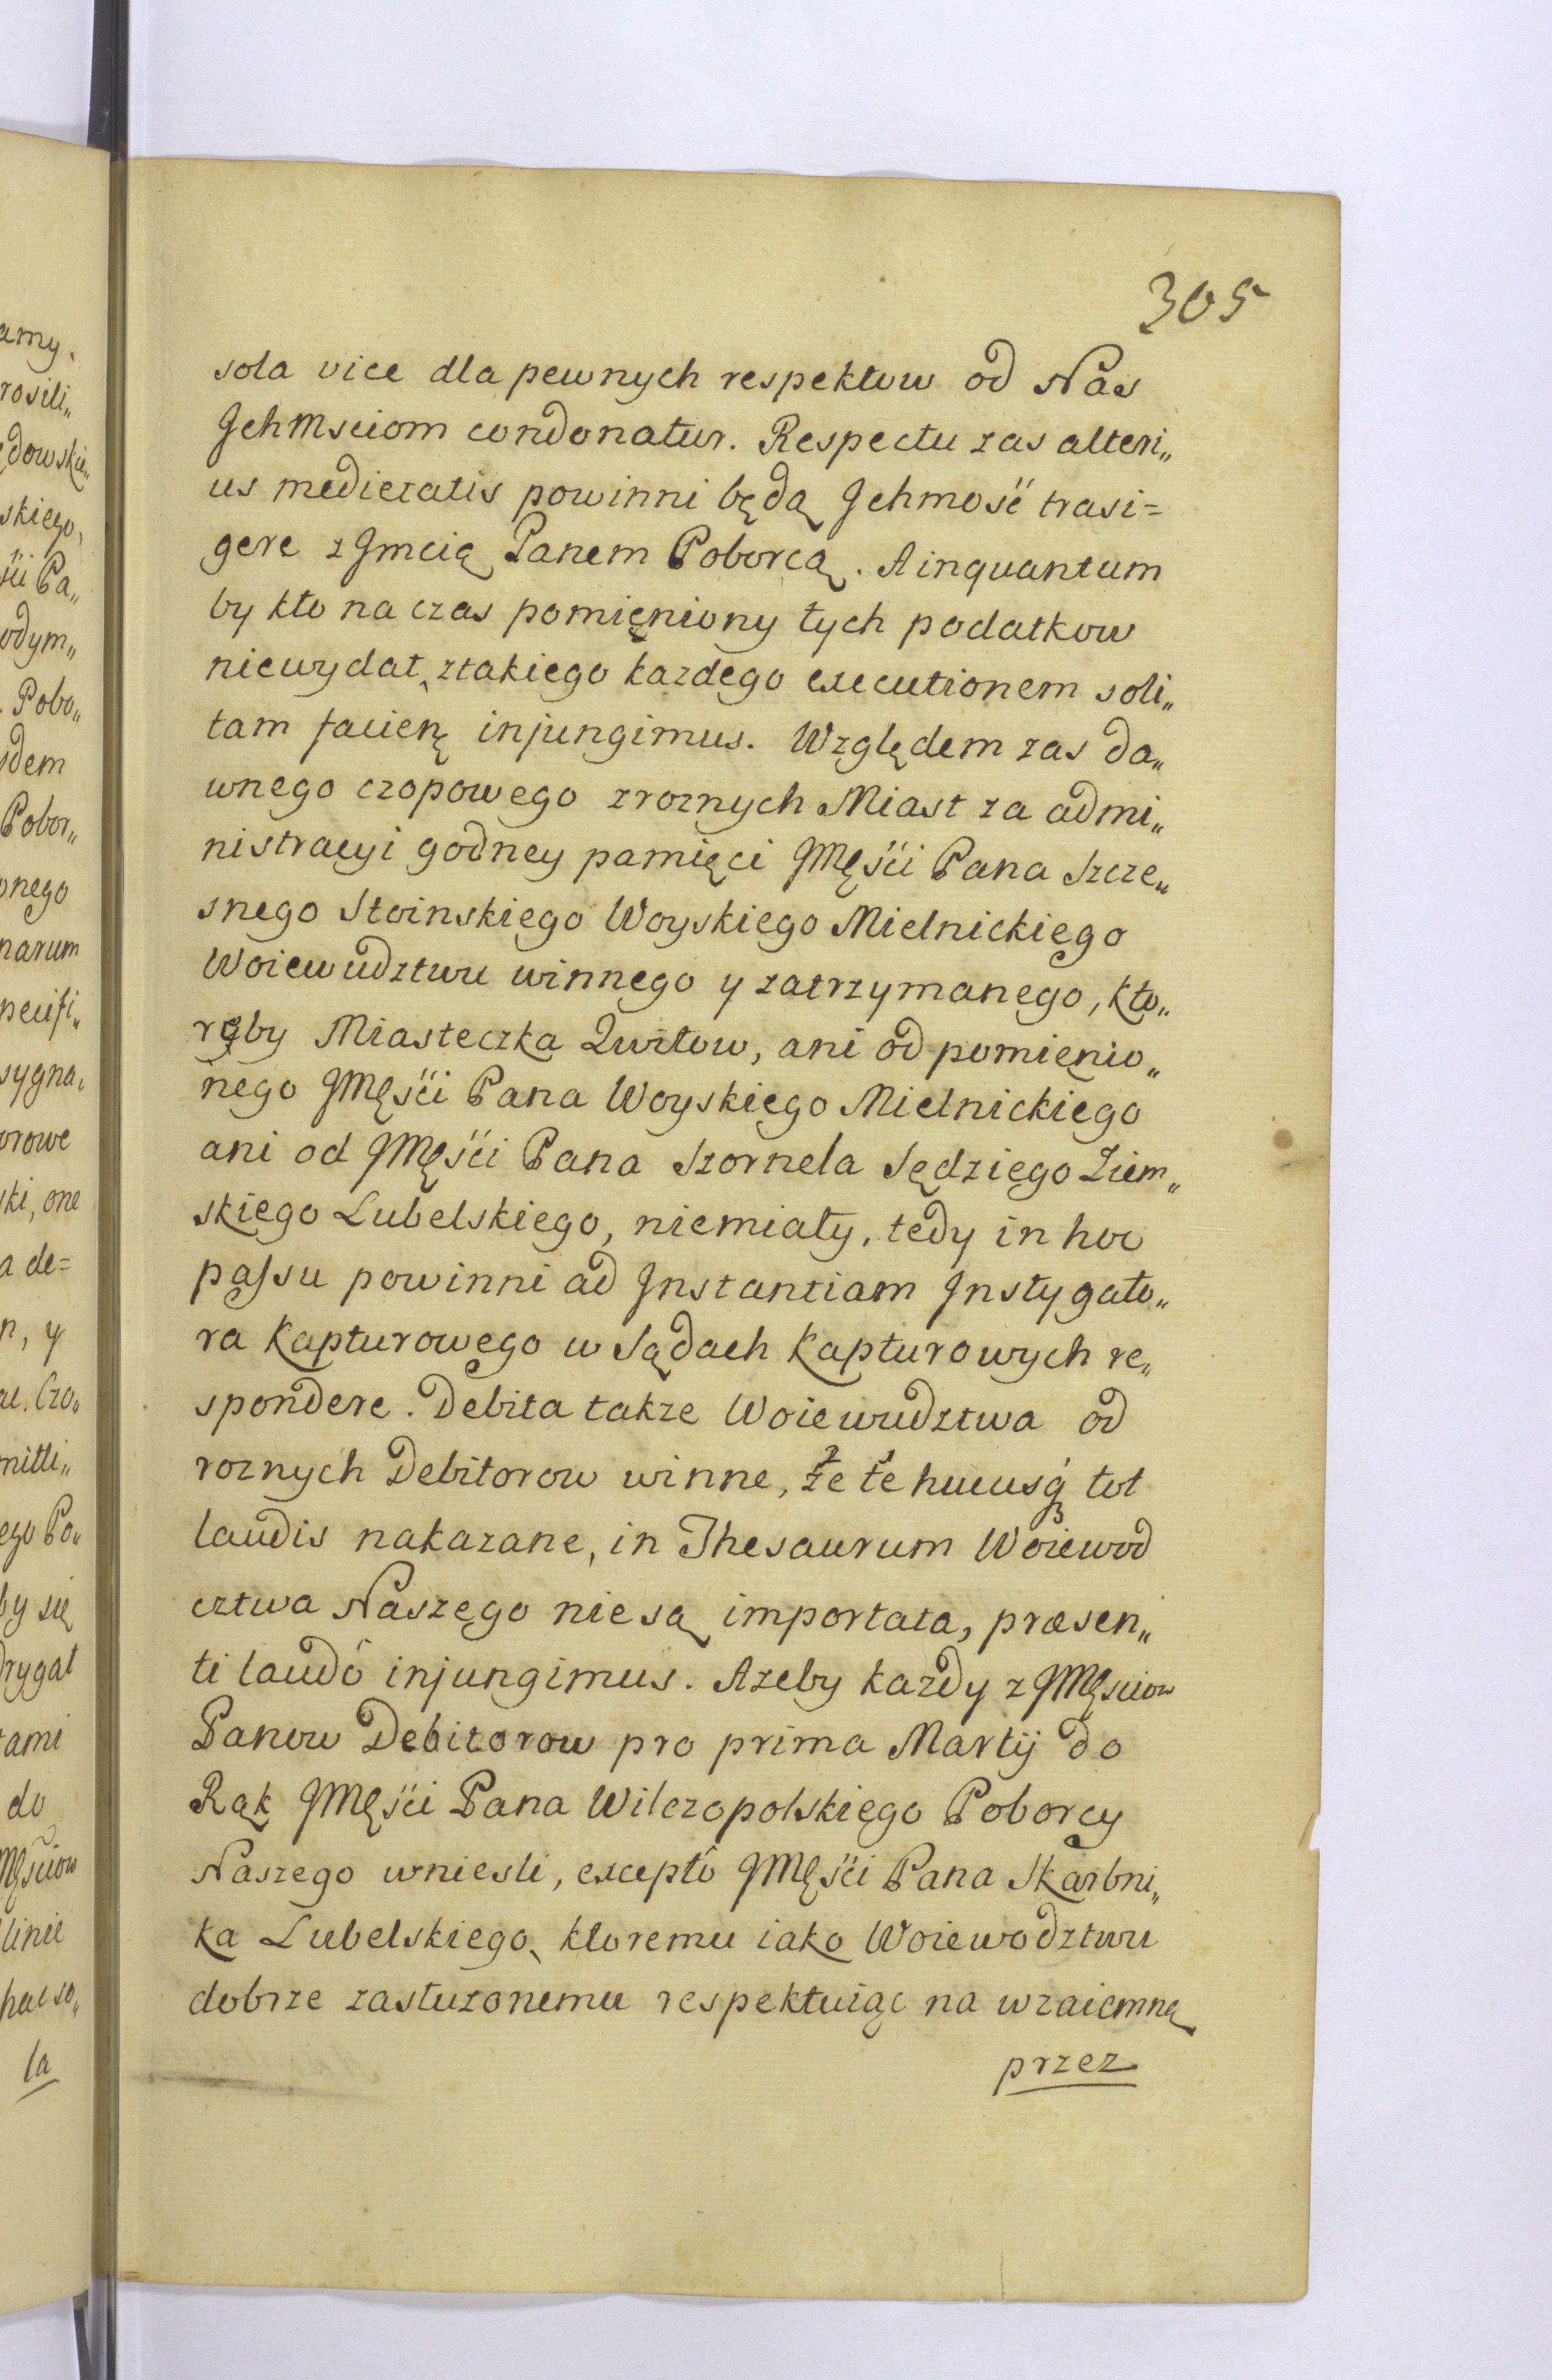 305
sola vice dla pewnych respektow od Nas
Jchmsciom condonatur. Respectu zas alteri„
us medietatis powinni będą Jchmość trasi=
gere z Jmcią Panem Poborcą. A inquantum
by kto na czas pomięniony tych podatkow
niewydał, ztakiego kazdego executionem soli„
tam facienę injungimus. Względem zas da„
wnego czopowego zroznych Miast za admi„
nistracyi godney pamięci JMści Pana Szcze„
snego Stoinskiego Woyskiego Mielnickiego
Woiewudztwu winnego y zatrzymanego, kto„
reby Miasteczka Qwitow, ani od pomięnio„
nego JMści Pana Woyskiego Mielnickiego
ani od JMści Pana Szornela Sędziego Ziem„
skiego Lubelskiego, niemiały, tedy in hoc
passu powinni ad Jnstantiam Jnstygato„
ra Kapturowego w Sądach Kapturowych re„
spondere. Debita takze Woiewudztwa od
roznych Debitorow winne, że te hucusq́ tot
laudis nakazane, in Thesaurum Woiewod
cztwa Naszego niesą importata, præsen„
ti laudô injungimus. Azeby kazdy z JMsciow
Panow Debitorow pro prima Martij do
Rąk JMści Pana Wilczopolskiego Poborcy
Naszego wniesli, exceptô JMści Pana Skarbni„
ka Lubelskiego, ktoremu iako Woiewodztwu
dobrze zasłuzonemu respektuiąc na wzaiemną
przez
amy.
rosili„
ędowskie„
skiego,
ści Pa„
odym„
. Pobo„
idem
Pobor„
onego
narum
pecifi„
sygna„
orowe
ki, one
a de=
n, y
ac. Czo„
mitti„
ego Po„
by się
drygał
tami
do
Mściow
linie
hac so„
la